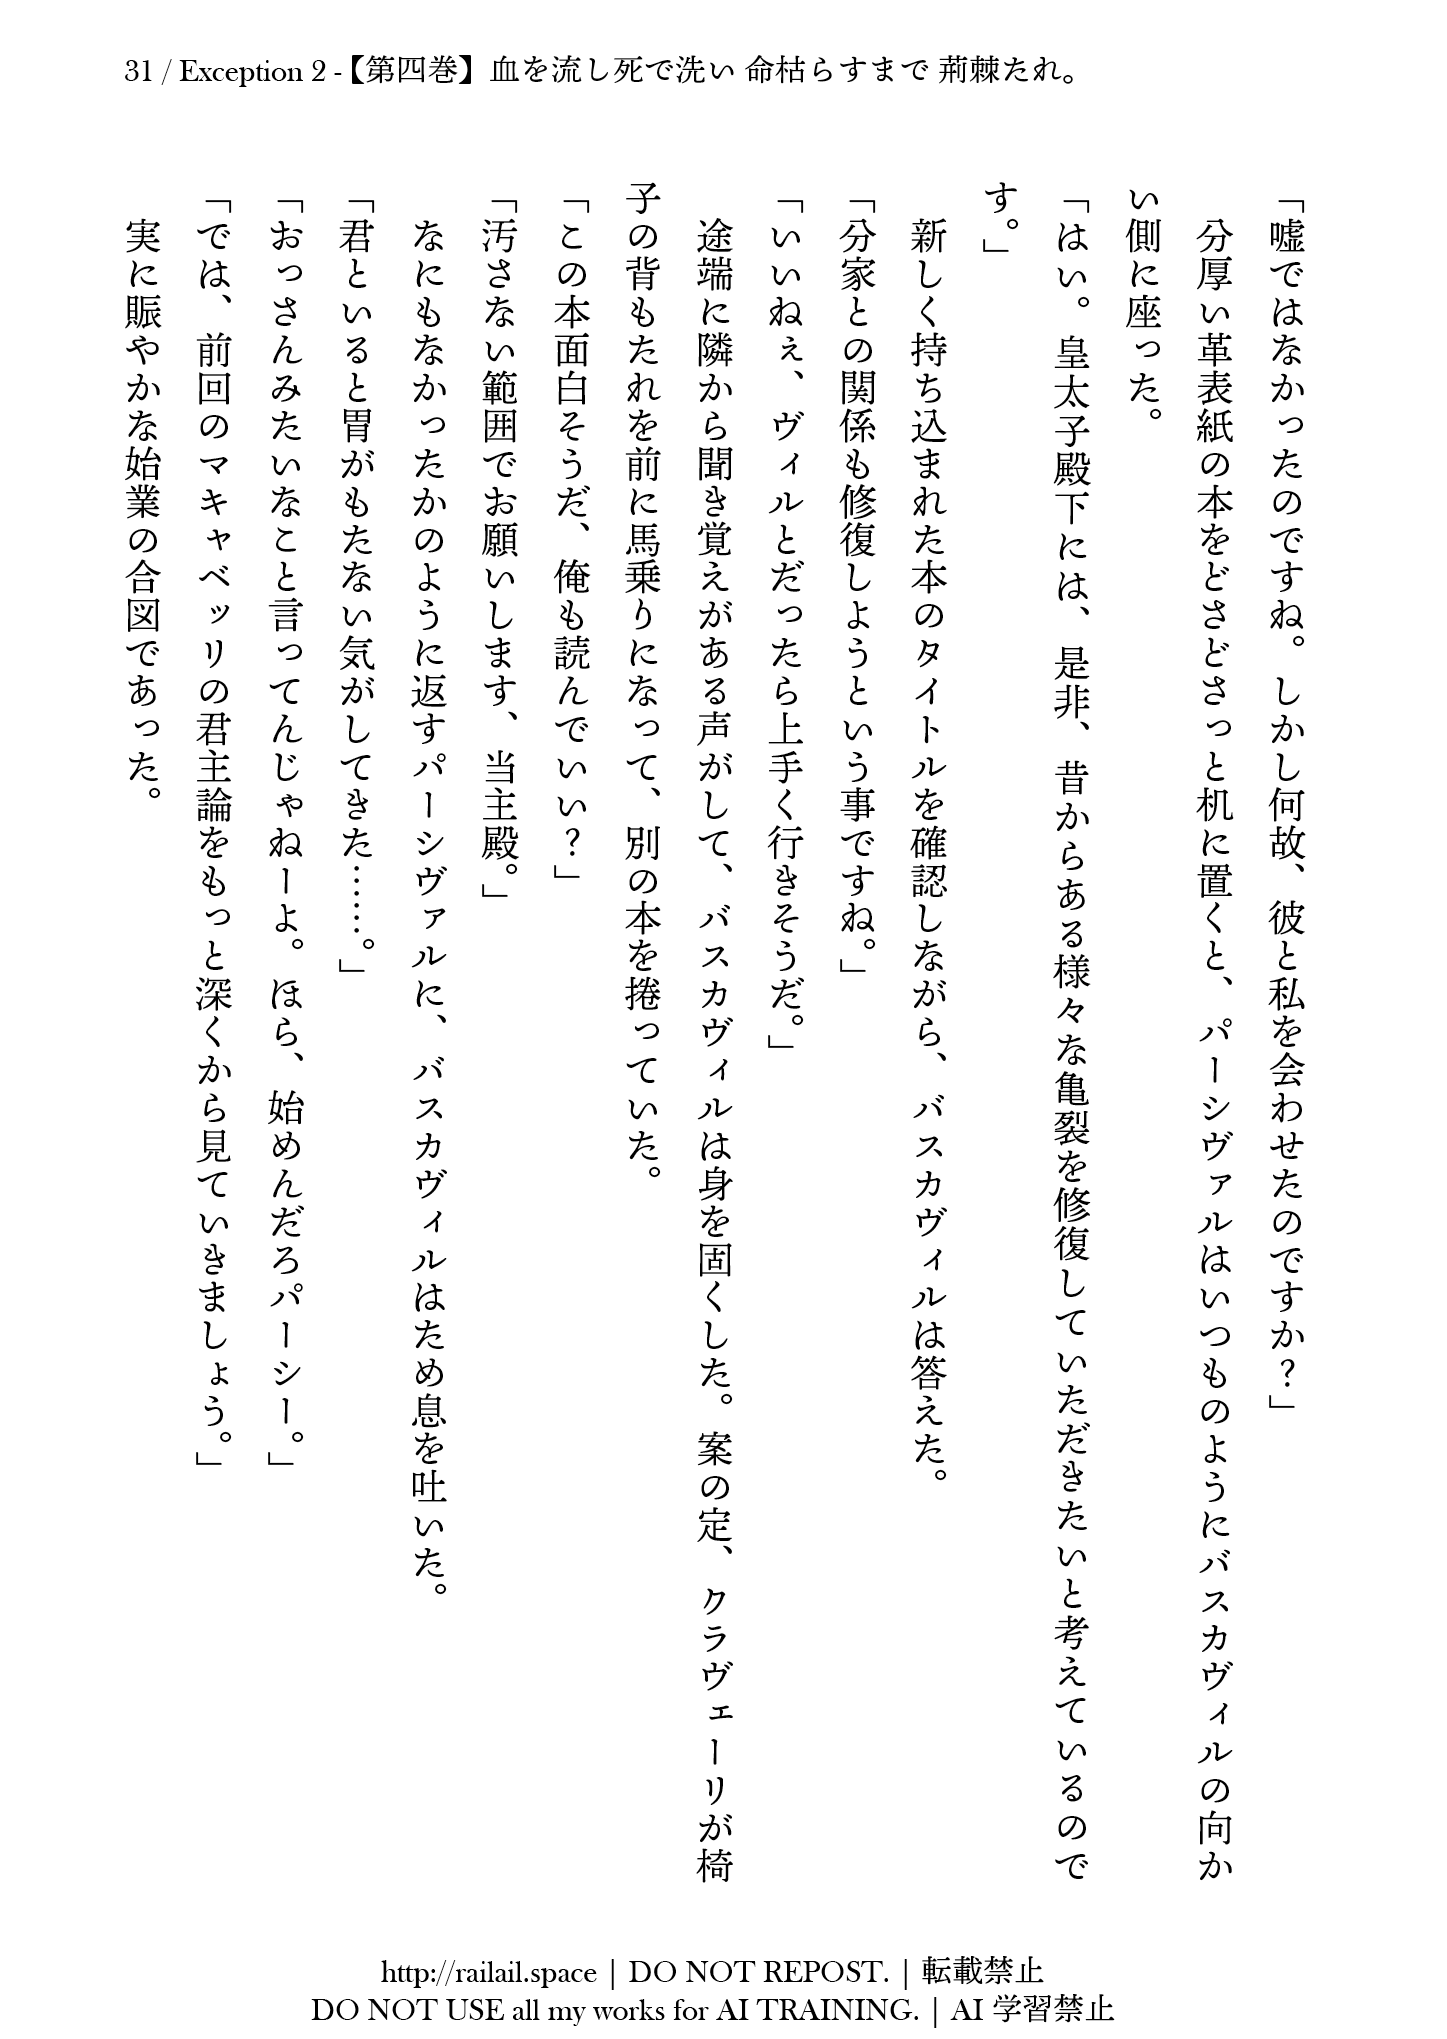 31 / Exception 2 -【第四巻】血を流し死で洗い 命枯らすまで 荊棘たれ。
「嘘ではなかったのですね。しかし何故、彼と私を会わせたのですか？」
　分厚い革表紙の本をどさどさっと机に置くと、パーシヴァルはいつものようにバスカヴィルの向か
い側に座った。
「はい。皇太子殿下には、是非、昔からある様々な亀裂を修復していただきたいと考えているので
す。」
　新しく持ち込まれた本のタイトルを確認しながら、バスカヴィルは答えた。
「分家との関係も修復しようという事ですね。」
「いいねぇ、ヴィルとだったら上手く行きそうだ。」
　途端に隣から聞き覚えがある声がして、バスカヴィルは身を固くした。案の定、クラヴェーリが椅
子の背もたれを前に馬乗りになって、別の本を捲っていた。
「この本面白そうだ、俺も読んでいい？」
「汚さない範囲でお願いします、当主殿。」
　なにもなかったかのように返すパーシヴァルに、バスカヴィルはため息を吐いた。
「君といると胃がもたない気がしてきた……。」
「おっさんみたいなこと言ってんじゃねーよ。ほら、始めんだろパーシー。」
「では、前回のマキャベッリの君主論をもっと深くから見ていきましょう。」
　実に賑やかな始業の合図であった。
http://railail.space | DO NOT REPOST. | 転載禁止
DO NOT USE all my works for AI TRAINING. | AI 学習禁止